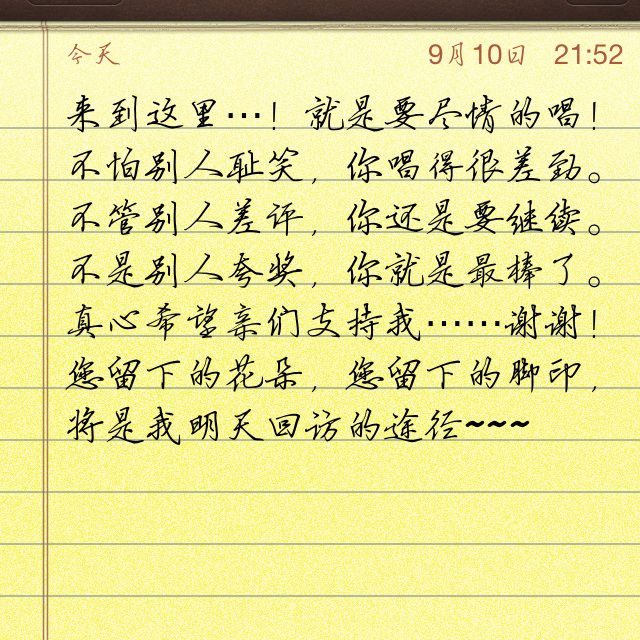 今天 9月10日 21:52
来到这里…！就是要尽情的唱！
不怕别人耻笑，你唱得很差劲。
不管别人差评，你还是要继续。
不是别人夸奖，你就是最捧了。
真心希望亲们支持我……谢谢！
您留下的花朵，您留下的脚印，
将是我明天回访的途径~~~